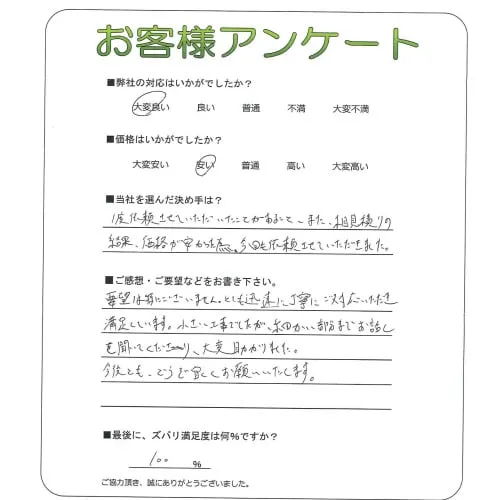 お客様アンケート
■弊社の対応はいかがでしたか？
大変良い 良い 普通 不満 大変不満
■価格はいかがでしたか？
大変安い 安い 普通 高い 大変高い
■当社を選んだ決め手は？
1度依頼させていただいたことがあるこて、また、相見積りの
結果、価格が安かった為、今回も依頼させていただきました。
■ご感想・ご要望などをお書き下さい。
要望は特にございません。とても迅速に丁寧にご対応いただき
満足しています。小さい工事でしたが、細かい部分までお話し
を聞いてくださり、大変助かりました。
今後とも、どうぞ宜しくお願いいたします。
■最後に、ズバリ満足度は何％ですか？
100 %
ご協力頂き、誠にありがとうございました。